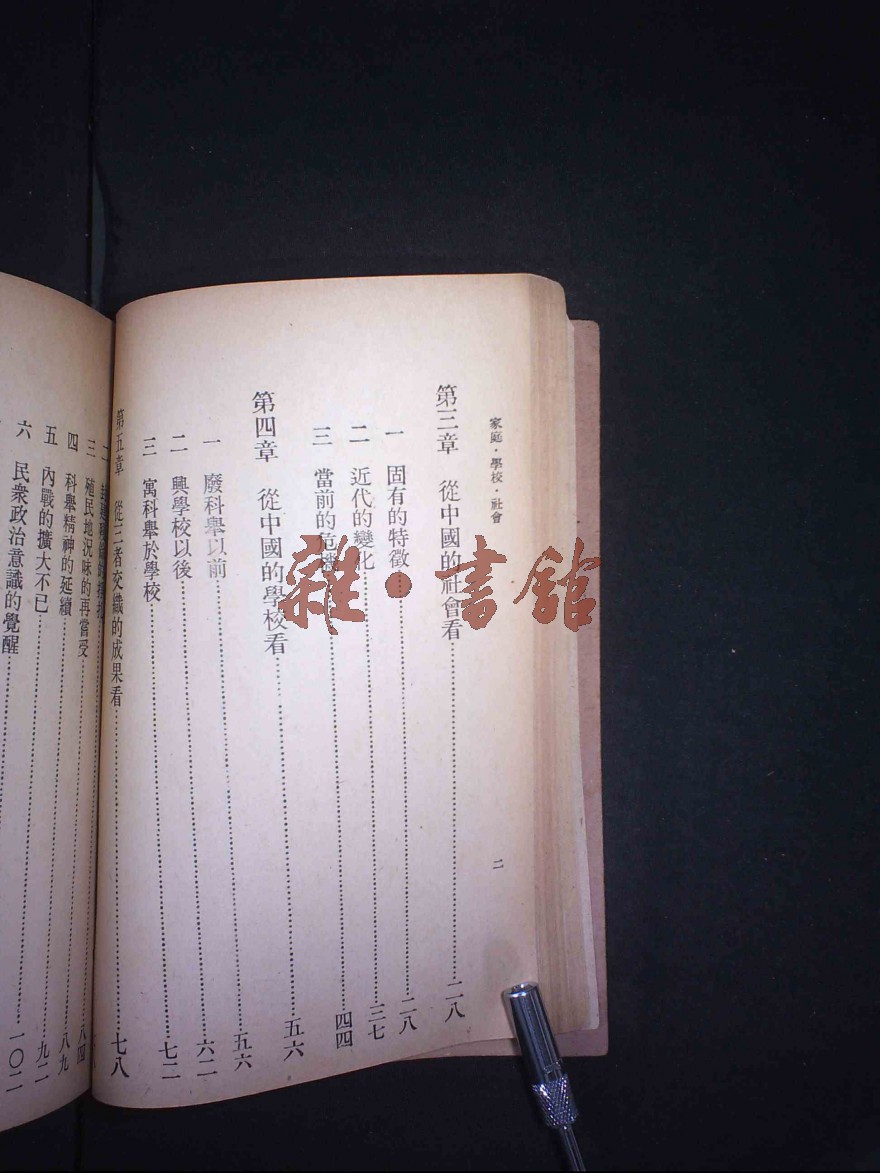 家庭·學校·社會
二
第三章 從中國的社會看……二八
一 固有的特徵……二八
二 近代的變化……三七
三 當前的危機……四四
第四章 從中國的學校看……五六
一 廢科舉以前……五六
二 興學校以後……六二
三 寓科舉於學校……七二
第五章 從三者交織的成果看……七八
三 殖民地況味的再嘗受……八四
四 科舉精神的延續……八九
五 內戰的擴大不已……九二
六 民衆政治意識的覺醒……一〇二
雜·書館